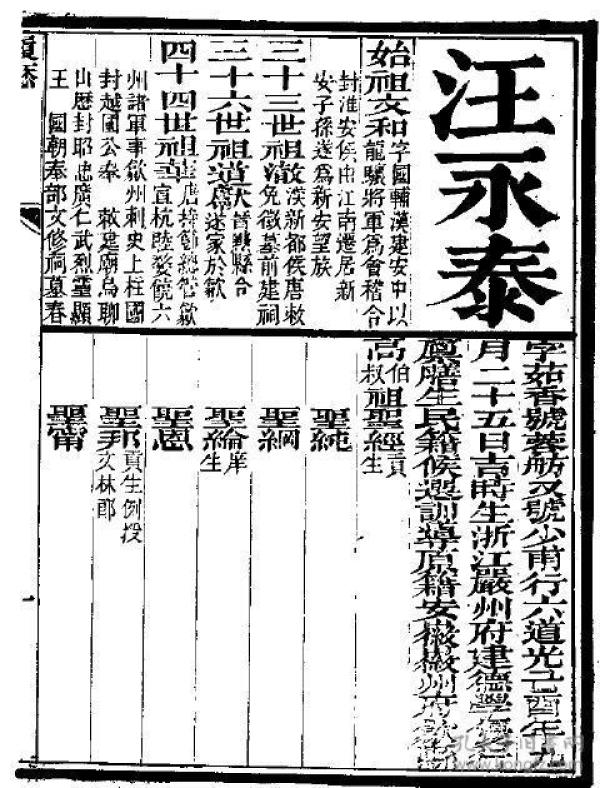 汪一永泰
字茹香號蓉舫又號少甫行六道光己酉年九
月二十五日吉時生浙江嚴州府建德學
廩膳生民籍候選訓導原籍安徽徽州府歙
始祖文和字國輔漢建安中以
龍驤將軍為會稽令
封淮安侯由江南遷居新
安子孫遂為新安望族
三十三世祖澈漢新都侯唐敕
免徵墓前建祠
三十六世祖道 晉黟縣令
遂家於歙
四十四世祖華唐持節總管歙
宣杭睦婺饒六
州諸軍事歙州刺史上柱國
封越國公奉 敕建廟烏聊
山歷封昭忠廣仁武烈靈顯
王 國朝奉部文修祠墓春
高伯
叔祖聖經貢
生
聖純
聖綱
聖綸庠
生
聖恩
聖邦貢生例授
文林郎
聖
履歷